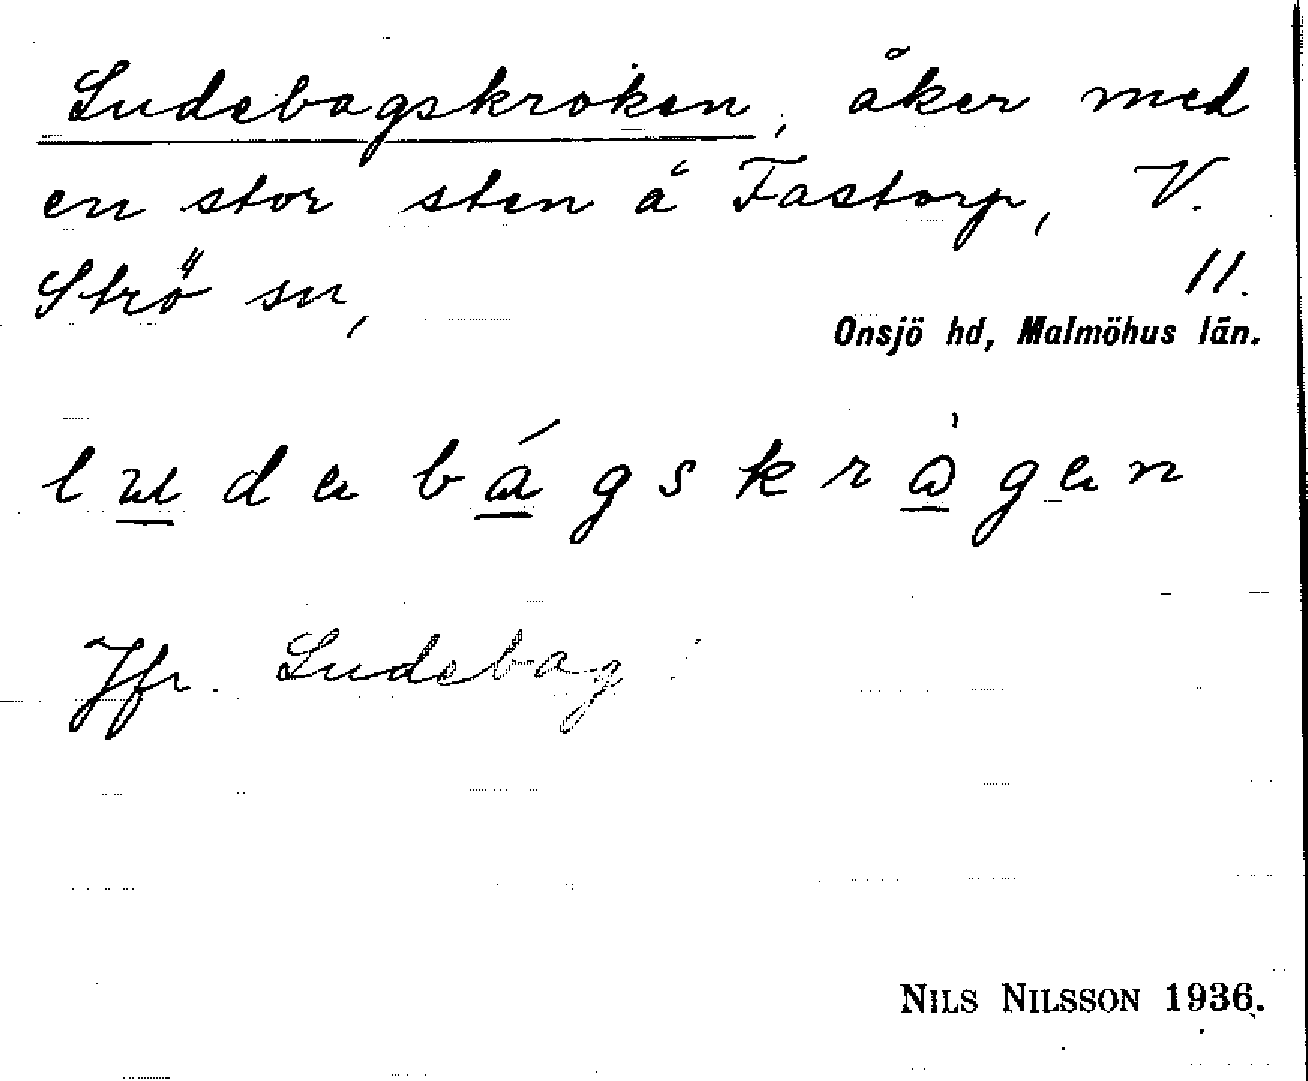 Ludebagskroken, åker med
en stor sten å Fastorp, V.
Strö sn, 11.
Onsjö hd, Malmöhus län.
ludebágskrågen
Jfr. Ludebag
NILS NILSSON 1936.